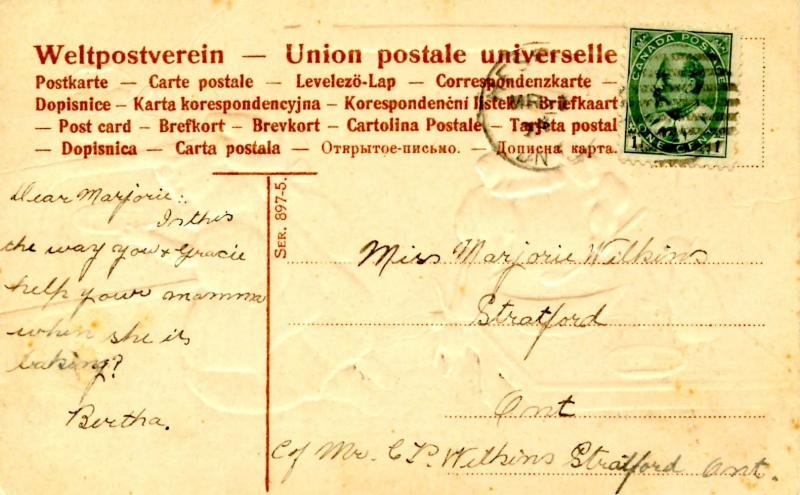 Weltpostverein — Union postale universelle
Postkarte — Carte postale — Levelező-Lap — Correspondenzkarte —
Dopisnice — Karta korespondencyjna — Korespondenční lístek — Briefkaart
— Post card — Brefkort — Brevkort — Cartolina Postale — Tarjeta postal
— Dopisnica — Carta postala — Открытое-письмо. — Дописна карта.
CANADA POSTAGE
ONE CENT
1 1
MR
SER. 897-5.
Dear Marjorie:
Is this
the way you & Gracie
help your mamma
when she is
baking?
Bertha.
Miss Marjorie Wilkins
Stratford
Ont
C/ Mr. C P. Wilkins Stratford Ont.